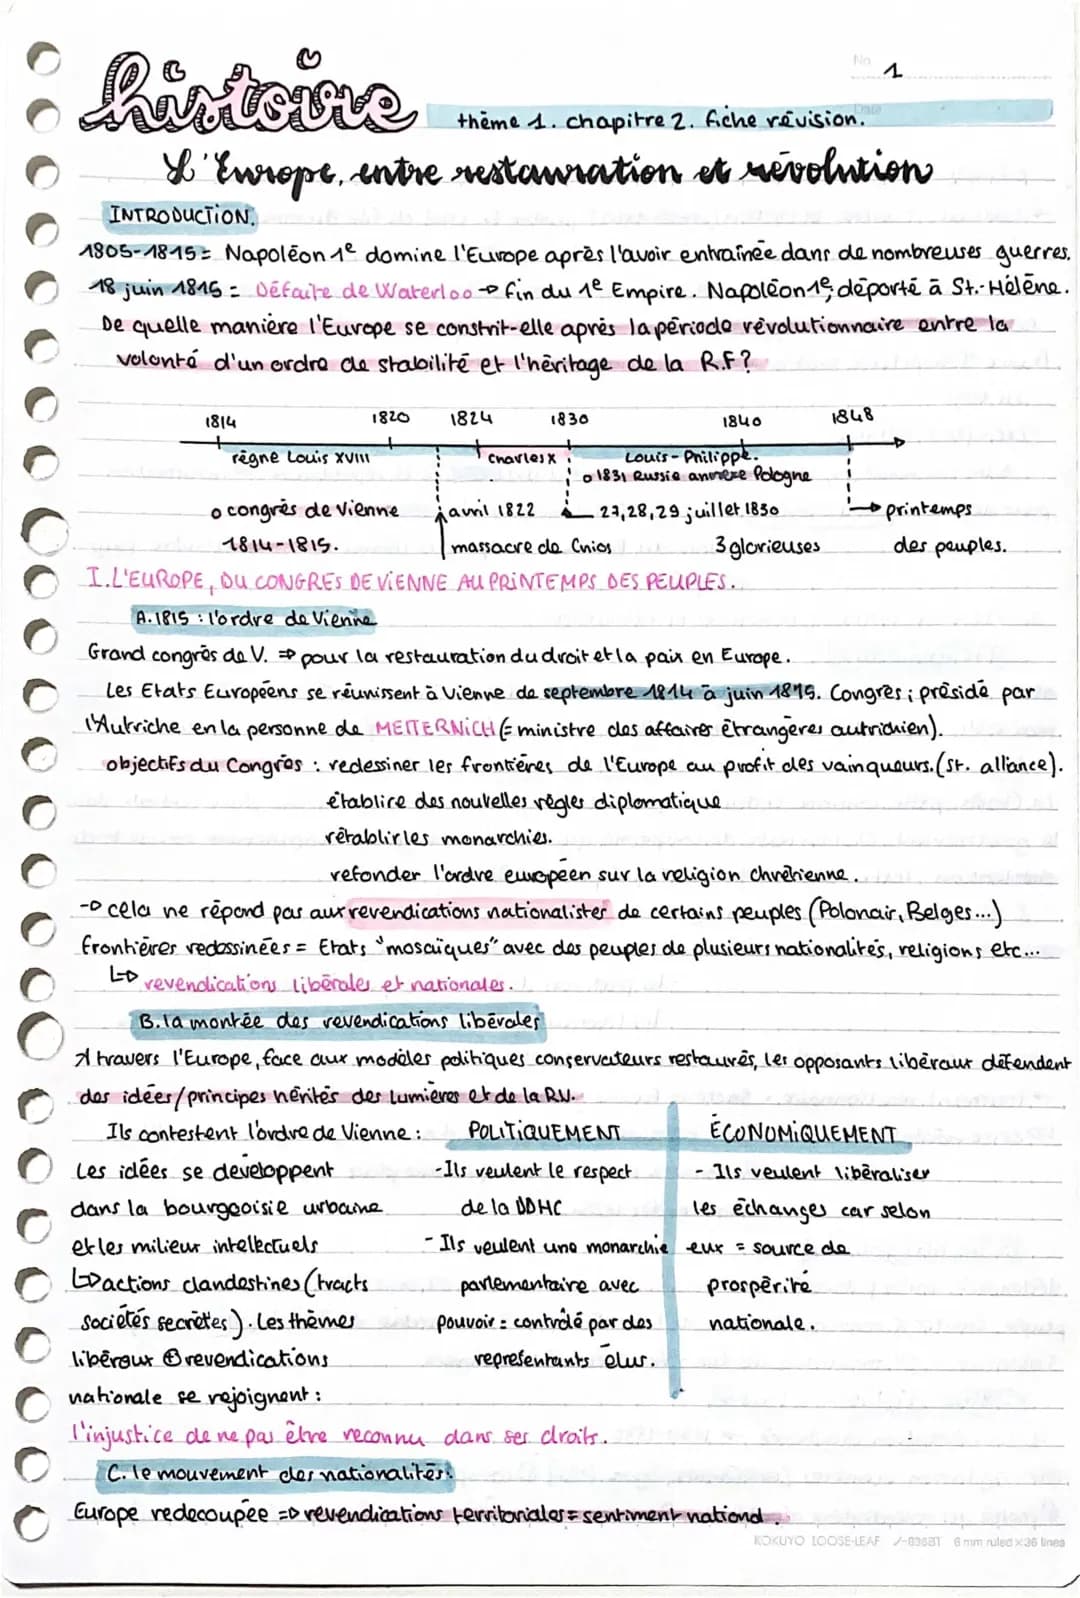 No 1
histoire
Date
thème 1. chapitre 2. fiche révision.
L'Europe, entre restauration et révolution
INTRODUCTION.
1805-1815 = Napoléon 1e domine l'Europe après l'avoir entraînée dans de nombreuses guerres.
18 juin 1815 = Défaite de Waterloo → fin du 1e Empire. Napoléon 1e; déporté à St.-Hélène.
De quelle manière l'Europe se constrit-elle après la période révolutionnaire entre la
volonté d'un ordre de stabilité et l'héritage de la R.F?
1814 1820 1824 1830 1840 1848
règne Louis XVIII Charles X Louis-Philippe.
o 1831 Russie annexe Pologne
o congrès de Vienne avril 1822 27,28,29 juillet 1830 → printemps
1814-1815. massacre de Chios 3 glorieuses des peuples.
I. L'EUROPE, DU CONGRES DE VIENNE AU PRINTEMPS DES PEUPLES.
A. 1815 : l'ordre de Vienne
Grand congrès de V. ⇒ pour la restauration du droit et la paix en Europe.
Les Etats Européens se réunissent à Vienne de septembre 1814 à juin 1815. Congrès ; présidé par
l'Autriche en la personne de METTERNICH (= ministre des affaires étrangères autrichien).
objectifs du Congrès : redessiner les frontières de l'Europe au profit des vainqueurs. (St. alliance).
établire des nouvelles règles diplomatique
rétablir les monarchies.
refonder l'ordre européen sur la religion chrétienne.
→ cela ne répond pas aux revendications nationalistes de certains peuples (Polonais, Belges...)
frontières redessinées = Etats "mosaïques" avec des peuples de plusieurs nationalités, religions etc...
↳ revendications libérales et nationales.
B. la montée des revendications libérales
A travers l'Europe, face aux modèles politiques conservateurs restaurés, les opposants libéraux défendent
des idées/principes hérités des lumières et de la RV.
Ils contestent l'ordre de Vienne : POLITIQUEMENT ÉCONOMIQUEMENT
Les idées se développent - Ils veulent le respect - Ils veulent libéraliser
dans la bourgeoisie urbaine de la DDHC les échanges car selon
et les milieux intellectuels - Ils veulent une monarchie eux = source de
↳ actions clandestines (tracts parlementaire avec prospérité
sociétés secrètes). Les thèmes pouvoir = contrôlé par des nationale.
libéraux ⊕ revendications représentants élus.
nationale se rejoignent :
l'injustice de ne pas être reconnu dans ses droits.
C. le mouvement des nationalités:
Europe redecoupée ⇒ revendications territoriales = sentiment national.
KOKUYO LOOSE-LEAF ノ-836BT 6 mm ruled × 36 lines